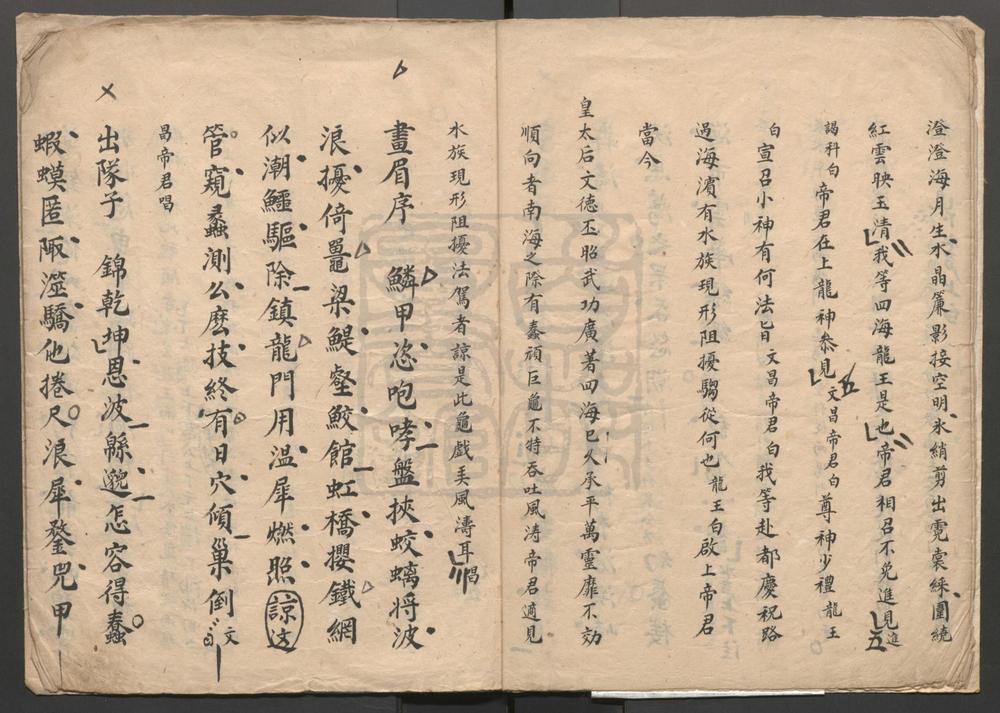 澄澄海月生水晶簾影接空明氷綃剪出霓裳綵圍繞
紅雲映玉清我等四海龍王是也帝君相召不免進見進
謁科白帝君在上龍神叅見文昌帝君白尊神少禮龍王
白宣召小神有何法旨文昌帝君白我等赴都慶祝路
過海濱有水族現形阻擾騶從何也龍王白啟上帝君
當今
皇太后文德丕昭武功廣著四海已久承平萬靈靡不効
順向者南海之除有蠢頑巨龜不特吞吐風涛帝君適見
水族現形阻擾法駕者諒是此龜戲弄風濤耳唱
畫眉序 鱗甲恣咆哮盤挾蛟螭将波
浪擾倚鼍梁鯷壑鮫館虹橋攖鐵網
似潮鱷驅除鎮龍門用温犀燃照諒这
管窺蠡測公麽技終有日穴傾巢倒文
昌帝君唱
出隊子 錦乾坤恩波緜邈怎容得蠢
蝦蟆匿陬澨驕他捲尺浪犀鍪兕甲